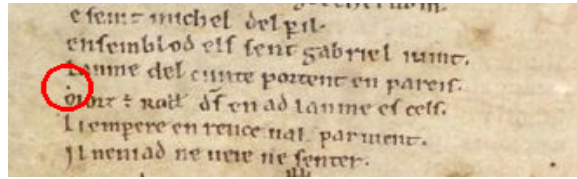 e seint michel del peil.
ensemblod els sent gabriel iuint.
Lanme del cunte portent en pareis.
Morz ē roll̄. d̄s en ad lanme es cels.
Li empere en rence ual paruient.
Il nen i ad ne ueie ne senter.